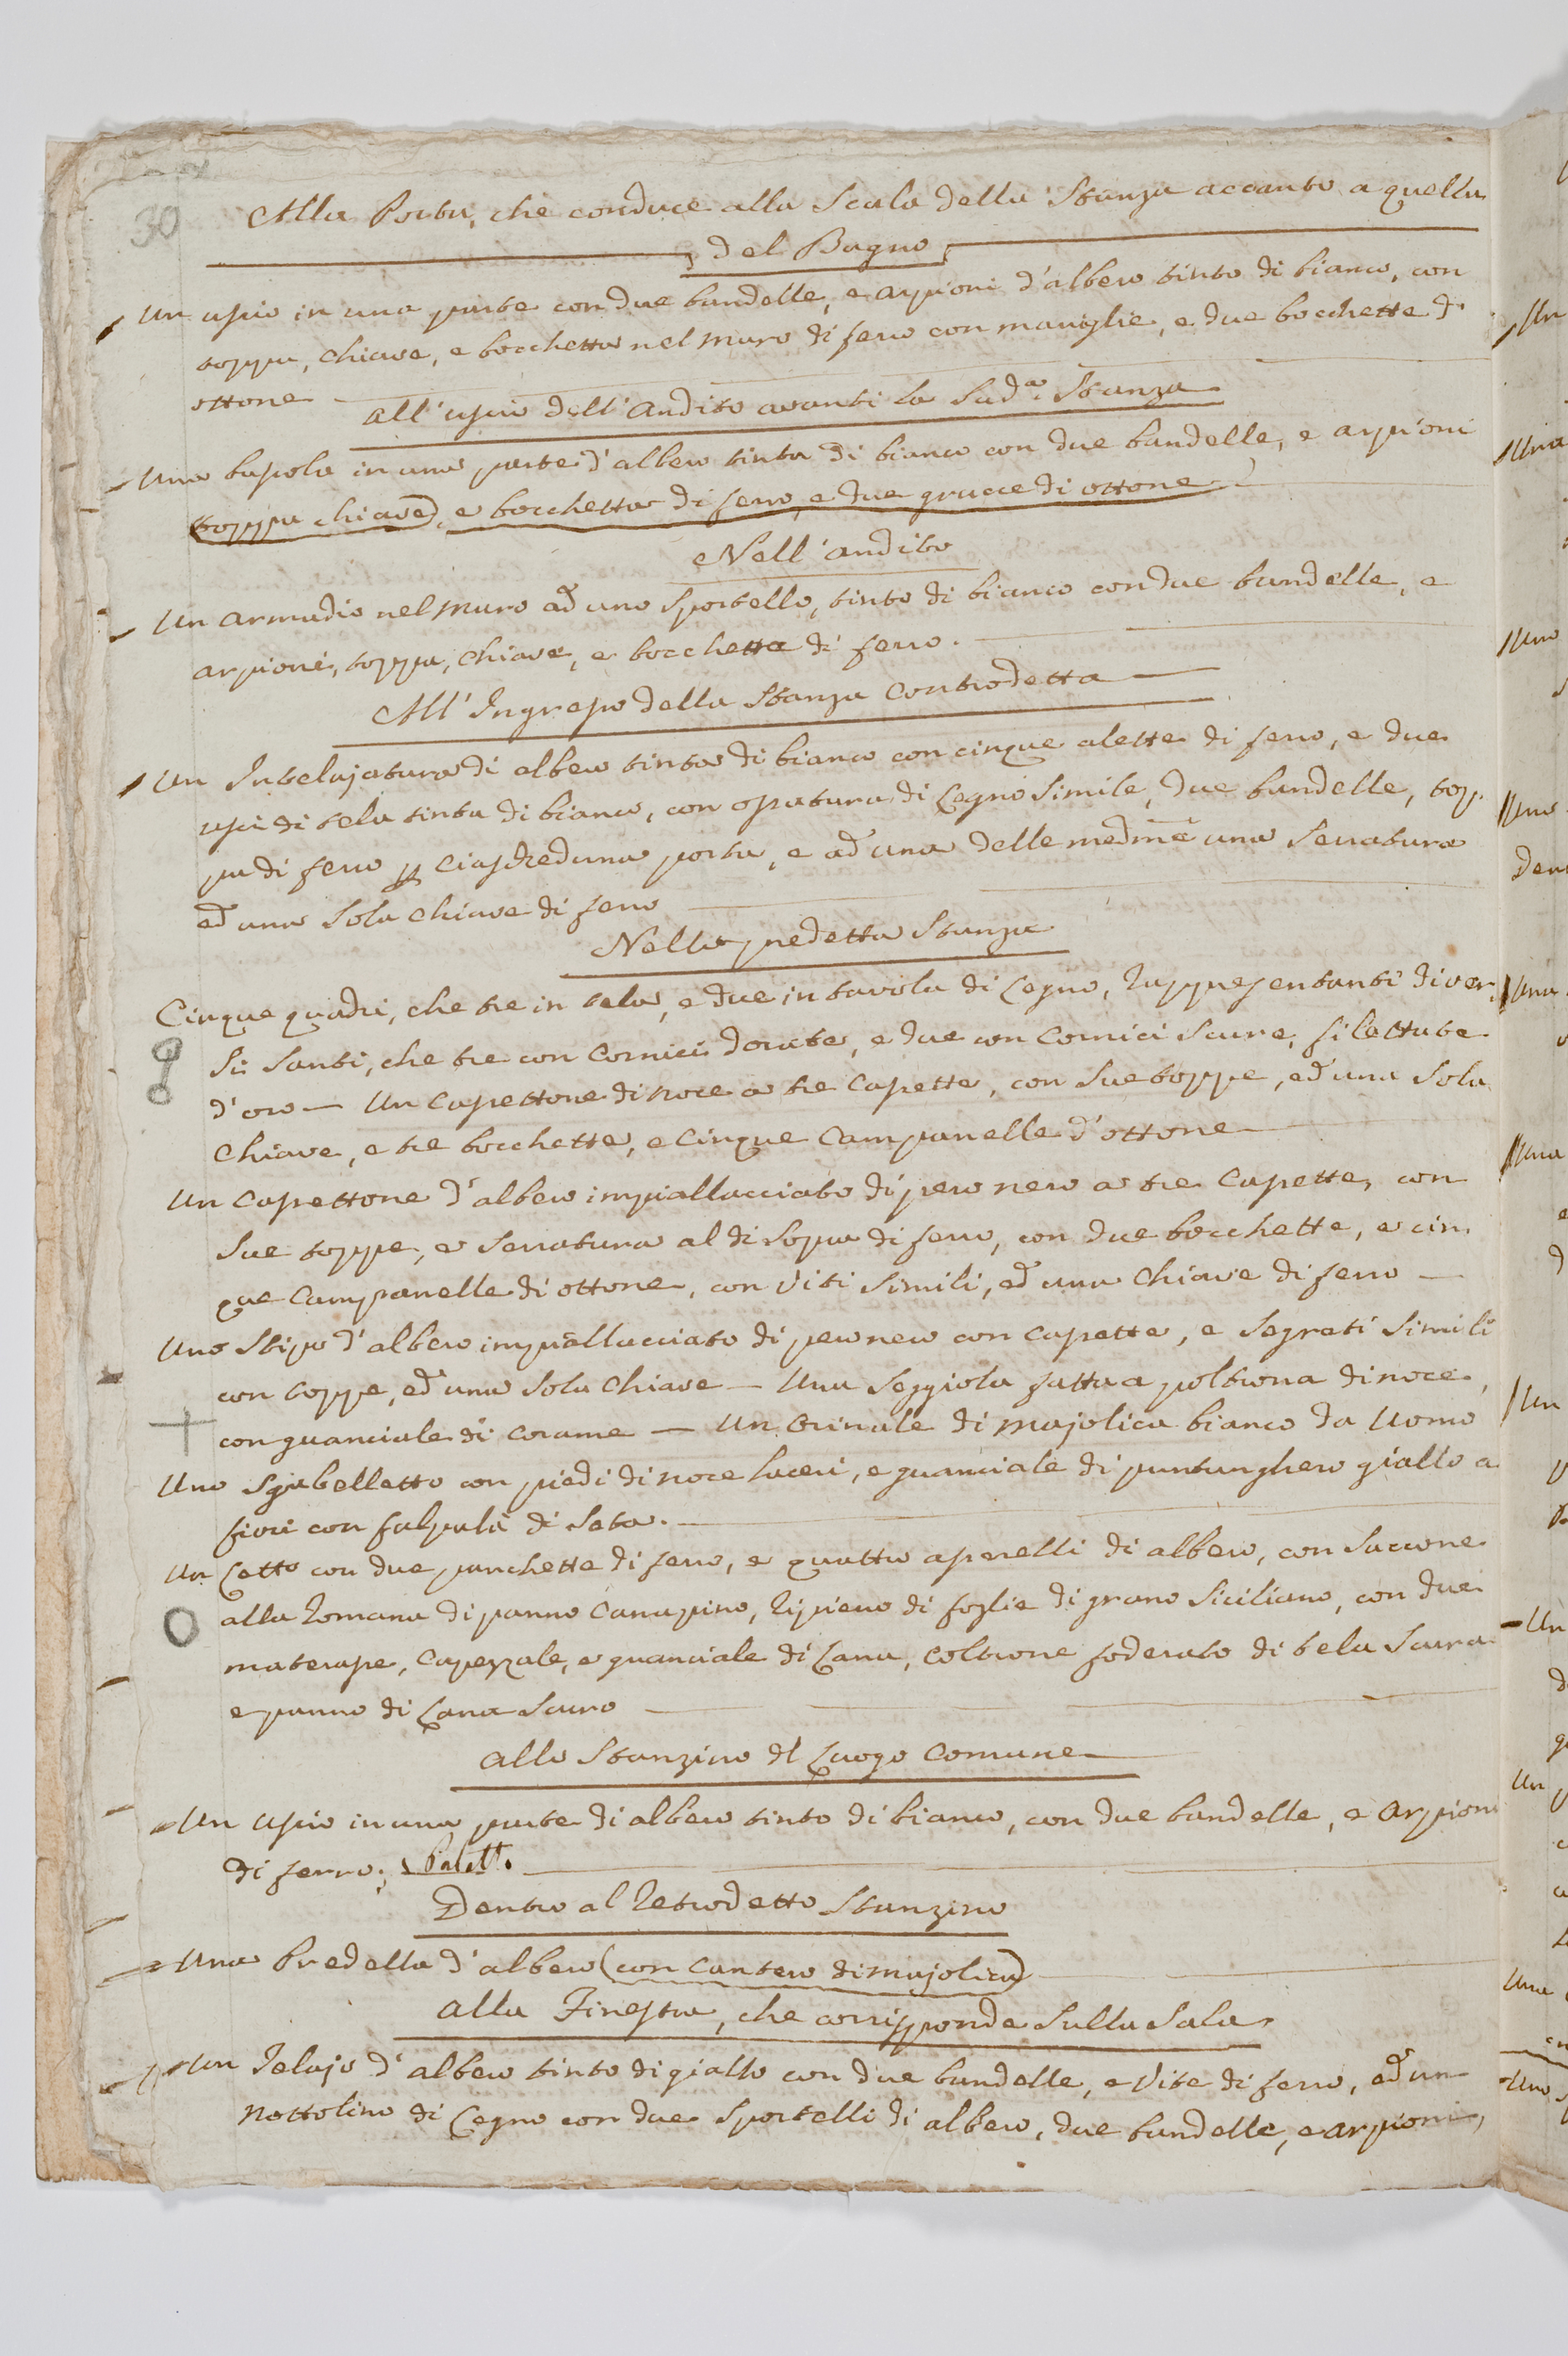 30
Alla Porta, che conduce alla Scala della Stanza accanto a quella
del Bagno
Un uscio in una parte con due bandelle, e arpioni d'albero tinto di bianco, con
toppa, chiave, e bocchetta nel muro di ferro con maniglie, e due bocchette d'
ottone
all'uscio dell'Andito avanti la Sud.ª Stanza
Una bussola in una parte d'albero tinta di bianco con due bandelle, e arpioni
(toppa chiave), e bocchetta di ferro, e due grucce di ottone
Nell'andito
Un armadio nel muro ad uno sportello, tinto di bianco con due bandelle, e
arpioni, toppa, chiave, e bocchetta di ferro.
All'Ingresso della Stanza Controdetta
Un Intelajatura di albero tinta di bianco con cinque alette di ferro, e due
usci di tela tinta di bianco, con ossatura di Legno simile, due bandelle, top=
pa di ferro p ciascheduna porta, e ad una delle medme una Serratura
ed una sola chiave di ferro
Nella predetta Stanza
Cinque quadri, che tre in tela, e due in tavola di Legno, rappresentanti diver=
si Santi, che tre con Cornici dorate, e due con Cornici scure, filettate
d'oro — Un Cassettone di noce a tre Cassette, con sue toppe, ed una sola
Chiave, e tre bocchette, e Cinque Campanelle d'ottone
Un Cassettone d'albero impiallacciato di pero nero a tre Cassette, con
sue toppe, e Serratura al di sopra di ferro, con due bocchette, e cin=
que Campanelle di ottone, con viti simili, ed una Chiave di ferro —
Uno Stipo d'albero impiallacciato di pero nero con Cassette, e Segreti simili
con toppe, ed una sola Chiave — Una Seggiola fatta a poltrona di noce,
con guanciale di Corame — Un Orinale di majolica bianco da Uomo
Uno sgabelletto con piedi di noce laceri, e guanciale di puntunghero giallo a
fiori con falpalà di Seta.
Un Letto con due panchette di ferro, e quattro asserelli di albero, con Saccone
alla Romana di panno Canapino, ripieno di foglie di grano Siciliano, con due
materasse, Capezzale, e guanciale di Lana, Coltrone foderato di tela Scura
e panno di Lana Scuro
allo Stanzino del Luogo Comune
Un Uscio in una parte di albero tinto di bianco, con due bandelle, e Arpioni
di ferro, e Palett.
Dentro al Retrodetto Stanzino
Una Predella d'albero (con Cantero di majolica)
alla Finestra, che corrisponde sulla Sala
Un Telajo d'albero tinto di giallo con due bandelle, e Vite di ferro, ed un
Nottolino di Legno con due Sportelli di albero, due bandelle, e arpioni,